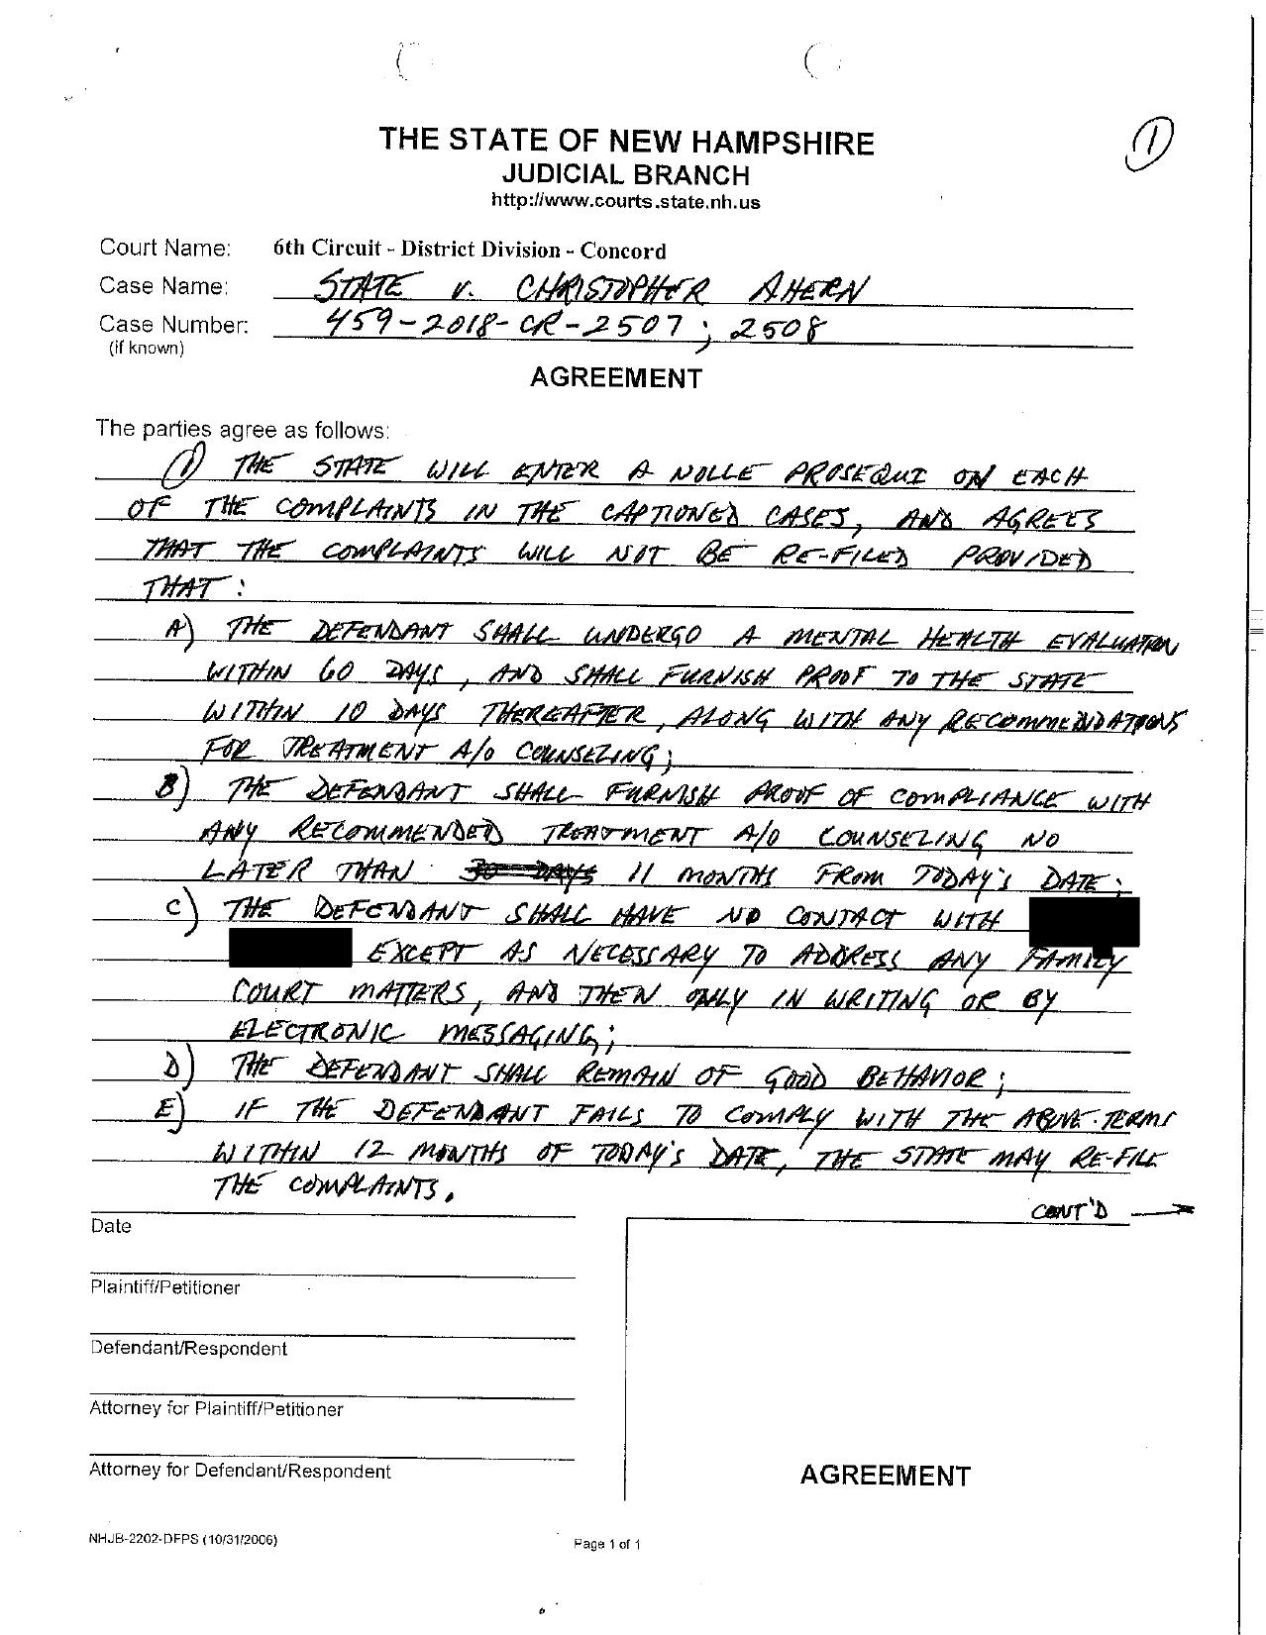 ①
THE STATE OF NEW HAMPSHIRE
JUDICIAL BRANCH
http://www.courts.state.nh.us
Court Name: 6th Circuit - District Division - Concord
Case Name: STATE v. CHRISTOPHER AHERN
Case Number: 459-2018-CR-2507; 2508
(if known)
AGREEMENT
The parties agree as follows:
① THE STATE WILL ENTER A NOLLE PROSEQUI ON EACH
OF THE COMPLAINTS IN THE CAPTIONED CASES, AND AGREES
THAT THE COMPLAINTS WILL NOT BE RE-FILED PROVIDED
THAT:
A) THE DEFENDANT SHALL UNDERGO A MENTAL HEALTH EVALUATION
WITHIN 60 DAYS, AND SHALL FURNISH PROOF TO THE STATE
WITHIN 10 DAYS THEREAFTER, ALONG WITH ANY RECOMMENDATIONS
FOR TREATMENT A/O COUNSELING;
B) THE DEFENDANT SHALL FURNISH PROOF OF COMPLIANCE WITH
ANY RECOMMENDED TREATMENT A/O COUNSELING NO
LATER THAN 30 DAYS 11 MONTHS FROM TODAY'S DATE;
C) THE DEFENDANT SHALL HAVE NO CONTACT WITH
EXCEPT AS NECESSARY TO ADDRESS ANY FAMILY
COURT MATTERS, AND THEN ONLY IN WRITING OR BY
ELECTRONIC MESSAGING;
D) THE DEFENDANT SHALL REMAIN OF GOOD BEHAVIOR;
E) IF THE DEFENDANT FAILS TO COMPLY WITH THE ABOVE TERMS
WITHIN 12 MONTHS OF TODAY'S DATE, THE STATE MAY RE-FILE
THE COMPLAINTS.
CONT'D →
Date
Plaintiff/Petitioner
Defendant/Respondent
Attorney for Plaintiff/Petitioner
Attorney for Defendant/Respondent
AGREEMENT
NHJB-2202-DFPS (10/31/2006)
Page 1 of 1